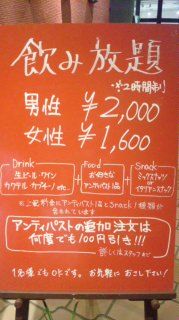 飲み放題
※2時間制!
男性 ¥2,000
女性 ¥1,600
Drink
生ビール ワイン
カクテル etc.
+
Food
お好きな
アンティパスト1品
+
Snack
ミックスナッツ
or
イタリアンスナック
※ご飲料金にアンティパスト1品とSnack1種類が
含まれています
アンティパストの追加注文は
何度でも100円引き!!!
詳しくはスタッフまで
1名様でもOKです。お気軽にお越し下さい!